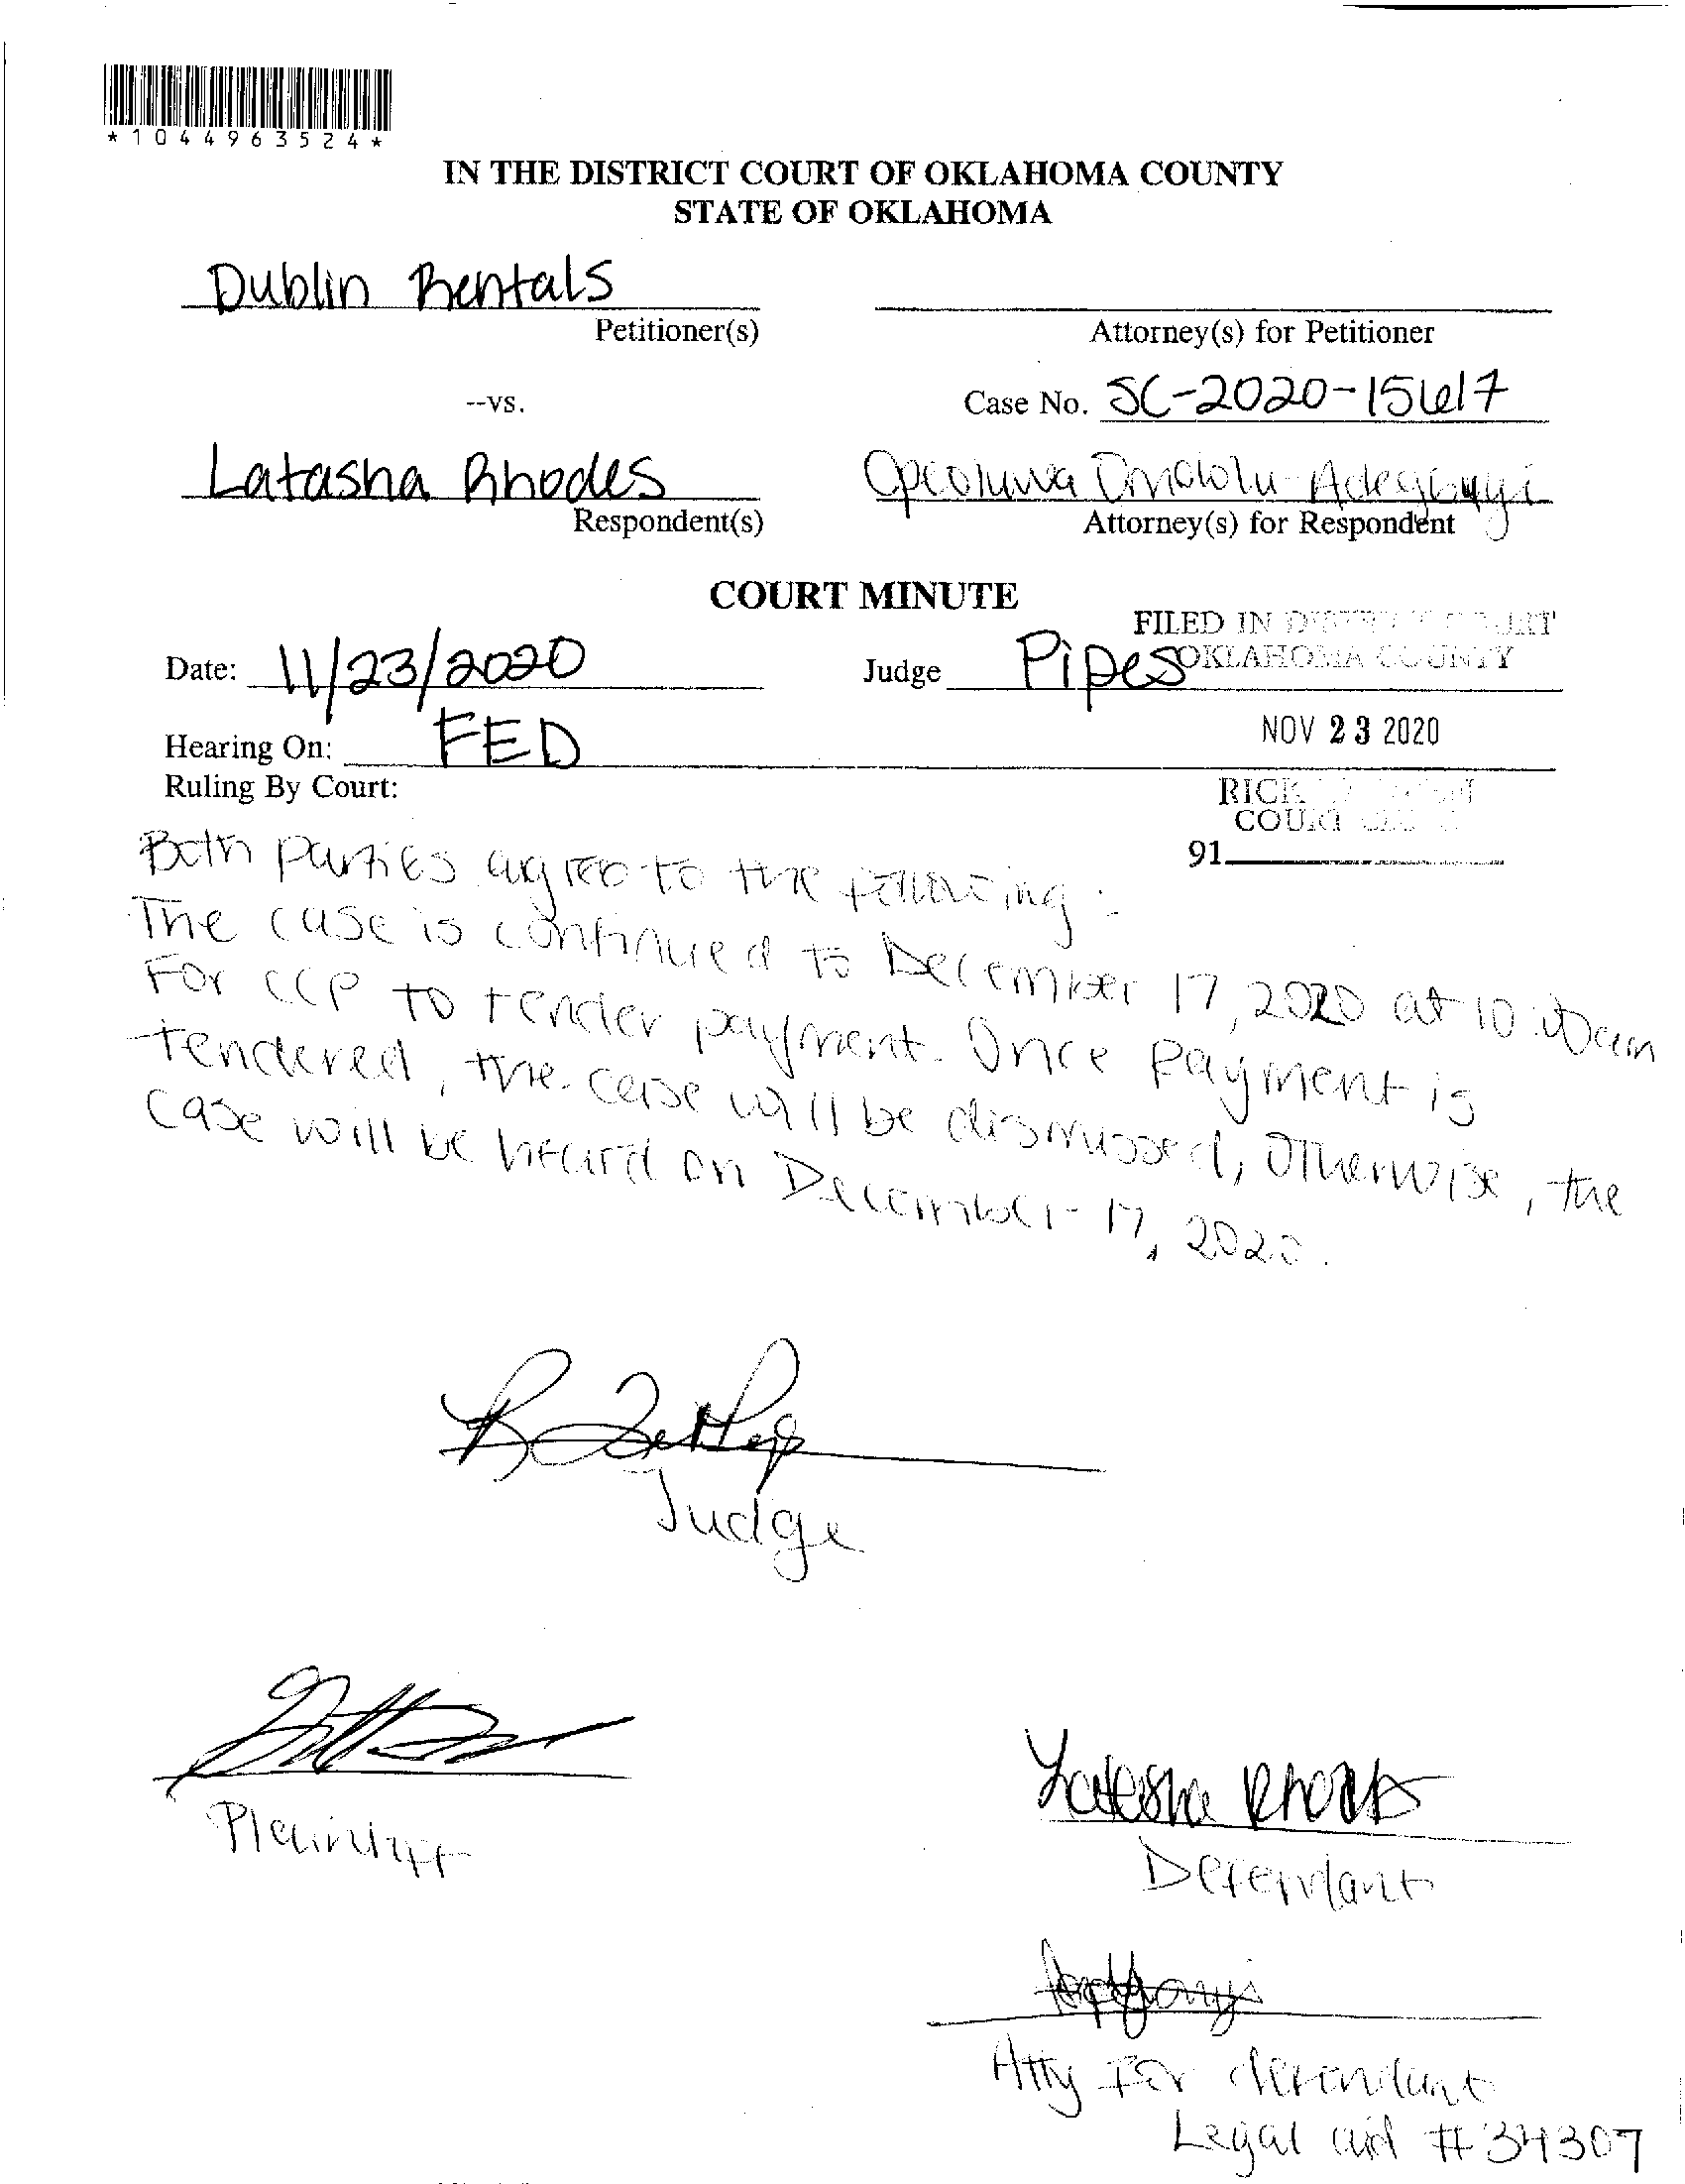 *1044963524*
IN THE DISTRICT COURT OF OKLAHOMA COUNTY
STATE OF OKLAHOMA
Dublin Rentals
Petitioner(s)
Attorney(s) for Petitioner
--vs.
Case No. SC-2020-15617
Latasha Rhodes
Respondent(s)
Adegbuyi
Attorney(s) for Respondent
COURT MINUTE
FILED IN DISTRICT COURT
OKLAHOMA COUNTY
Date: 11/23/2020
Judge Pipes
NOV 23 2020
Hearing On: FED
Ruling By Court:
RICK
COURT
91
Both parties agree to the following:
The case is continued to December 17, 2020 at 10:00am
For CCP to tender payment. Once payment is
tendered, the case will be dismissed, otherwise, the
case will be heard on December 17, 2020.
Judge
Plaintiff
Latasha Rhodes
Defendant
Atty For defendant
Legal aid #34307